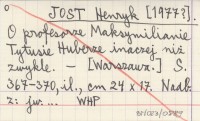 JOST Henryk [1977?].
O profesorze Maksymilianie
Tytusie Huberze inaczej niż
zwykle. – [Warszawa:] S.
367-370, il., cm 24 x 17. Nadb.
z:
WHP